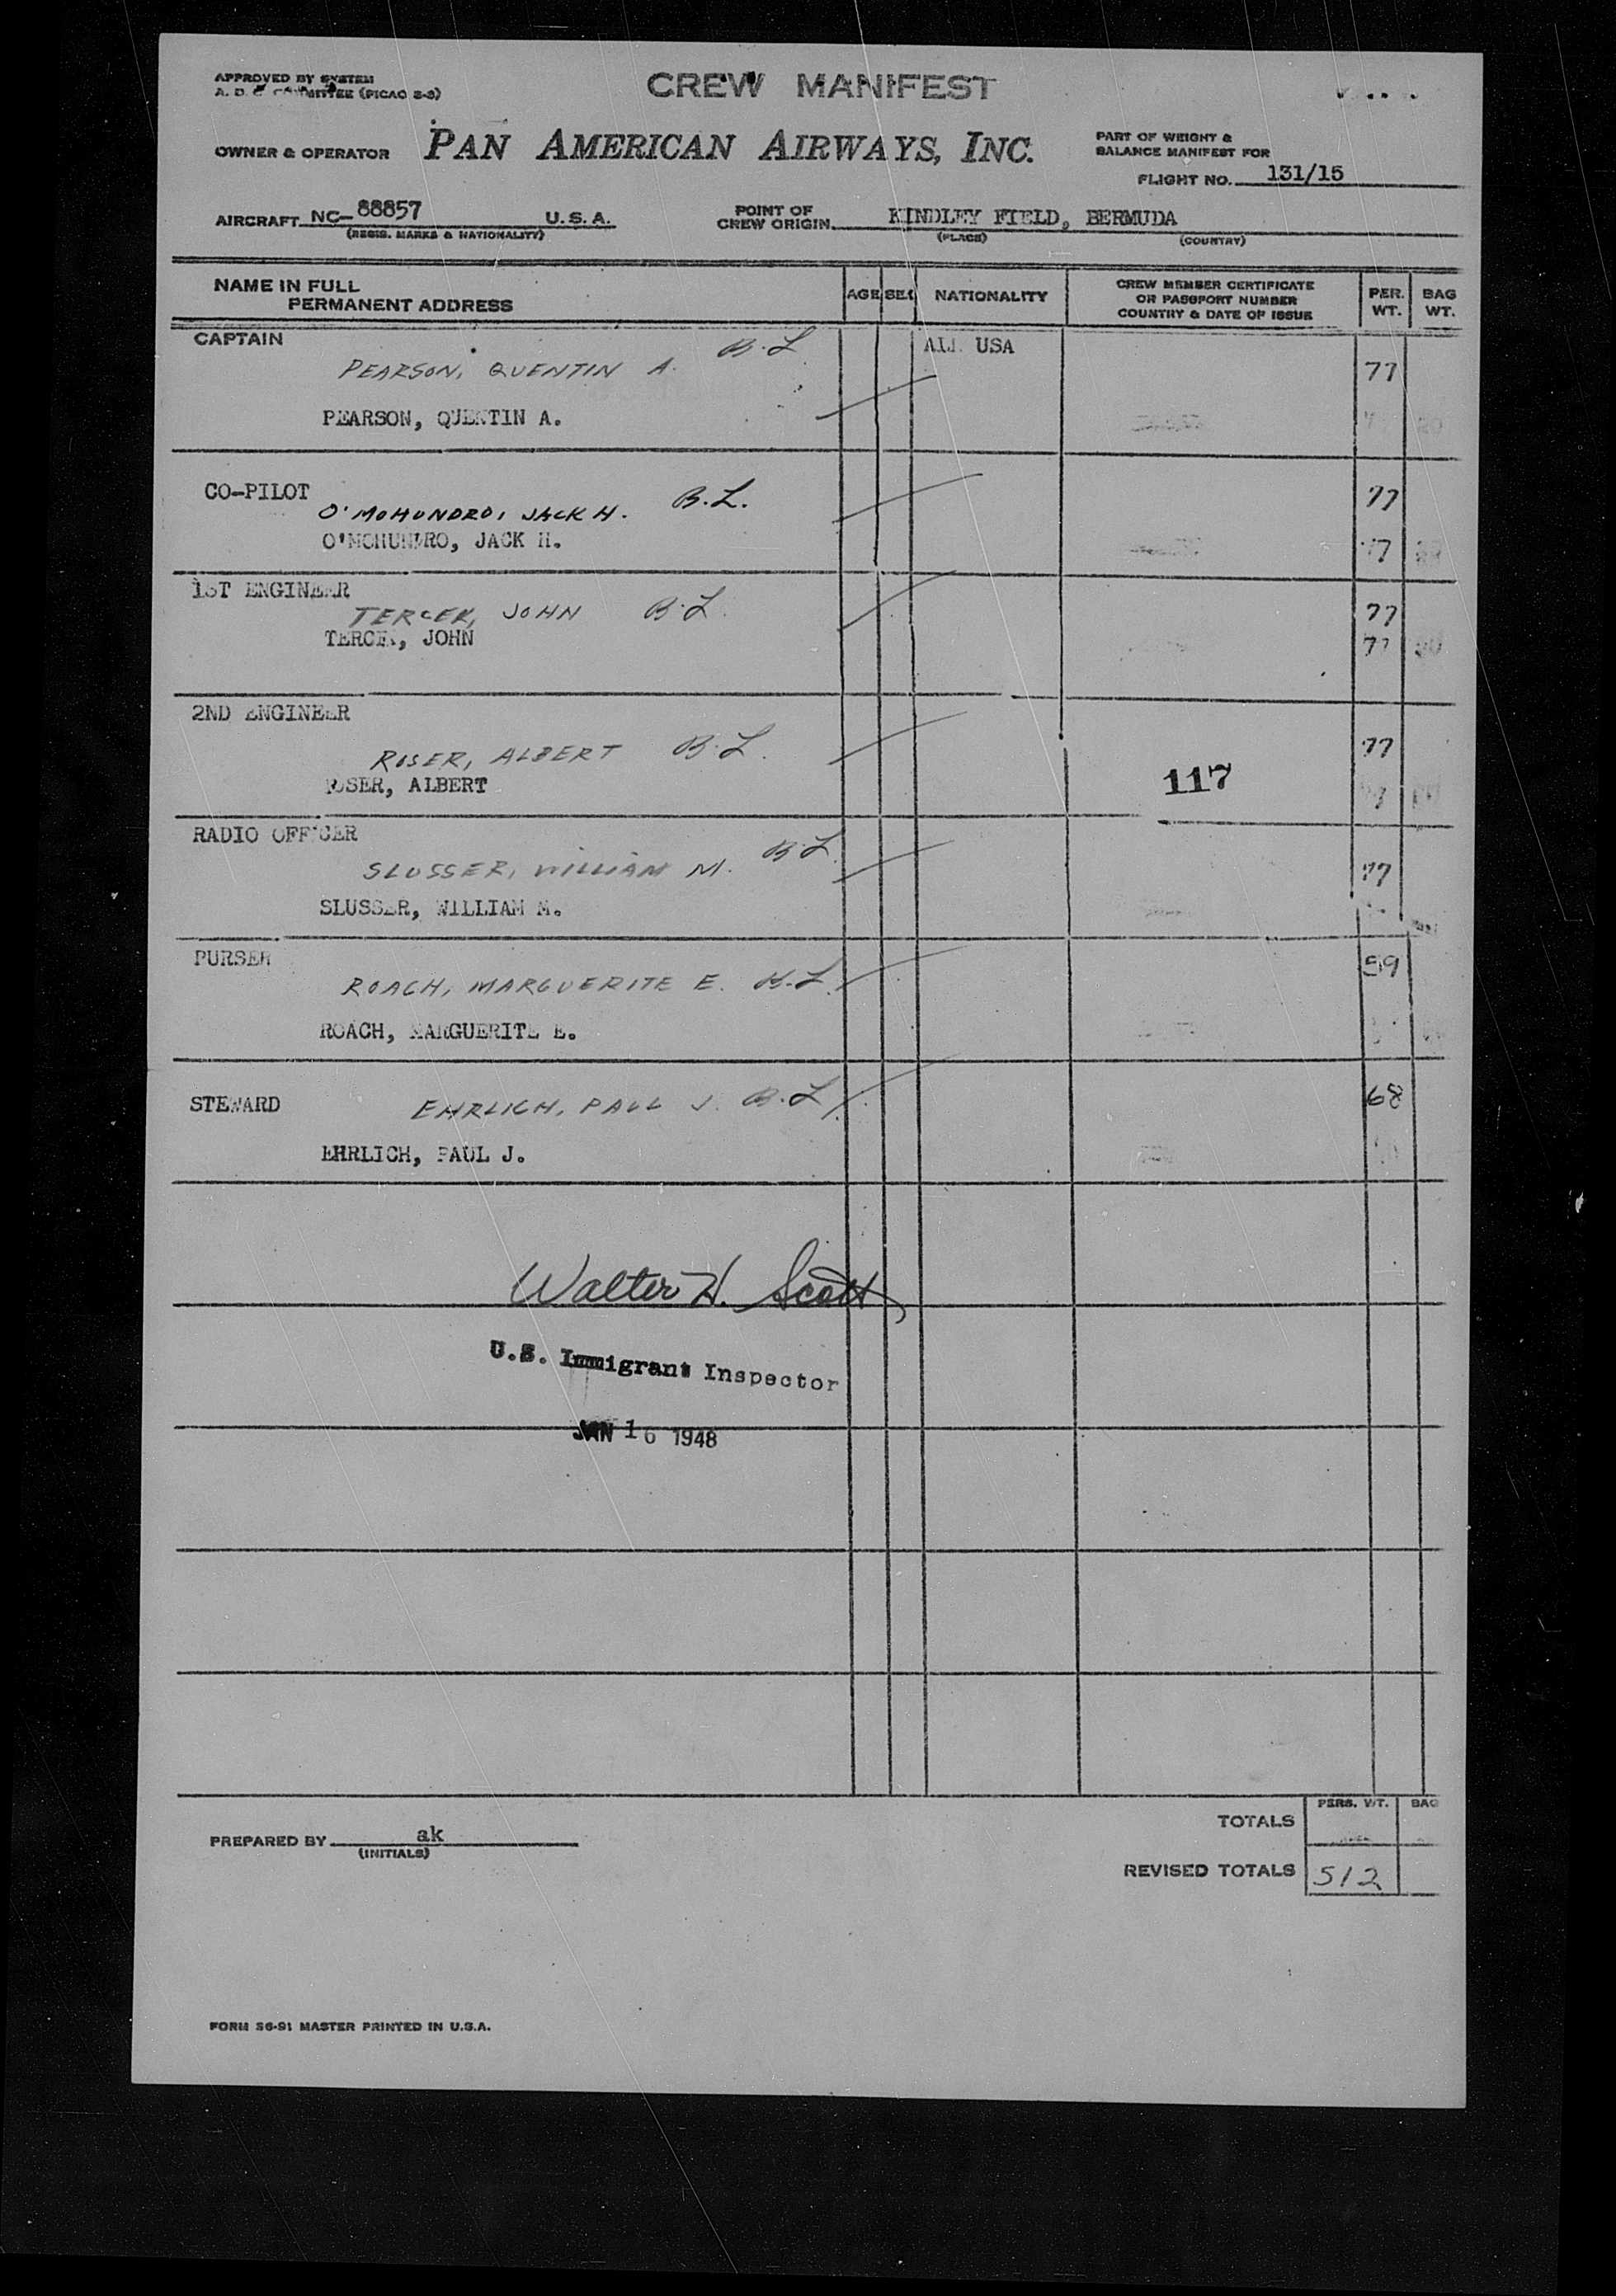 APPROVED BY SYSTEM
A. D. C. COMMITTEE (PICAO S-3)
CREW MANIFEST
OWNER & OPERATOR PAN AMERICAN AIRWAYS, INC.
PART OF WEIGHT &
BALANCE MANIFEST FOR
FLIGHT NO. 131/15
AIRCRAFT NC-88857 U.S.A.
(REGIS. MARKS & NATIONALITY)
POINT OF
CREW ORIGIN KINDLEY FIELD, BERMUDA
(PLACE) (COUNTRY)
NAME IN FULL
PERMANENT ADDRESS
AGE SEX NATIONALITY
CREW MEMBER CERTIFICATE
OR PASSPORT NUMBER
COUNTRY & DATE OF ISSUE
PER. WT.
BAG WT.
CAPTAIN
ALL USA
PEARSON, QUENTIN A. B.L 77
PEARSON, QUENTIN A.
CO-PILOT
O'MOHUNDRO, JACK H. B.L. 77
O'MOHUNDRO, JACK H. 77
1ST ENGINEER
TERCEK, JOHN B.L. 77
TERCEK, JOHN 77
2ND ENGINEER
ROSER, ALBERT B.L. 77
ROSER, ALBERT
117
RADIO OFFICER
SLUSSER, WILLIAM M. B.L. 77
SLUSSER, WILLIAM M.
PURSER
ROACH, MARGUERITE E. B.L. 59
ROACH, MARGUERITE E.
STEWARD EHRLICH, PAUL J. B.L. 68
EHRLICH, PAUL J.
Walter H. Scott
U.S. Immigrant Inspector
JAN 16 1948
PERS. WT. BAG
TOTALS
PREPARED BY ak
(INITIALS)
REVISED TOTALS 512
FORM 36-91 MASTER PRINTED IN U.S.A.